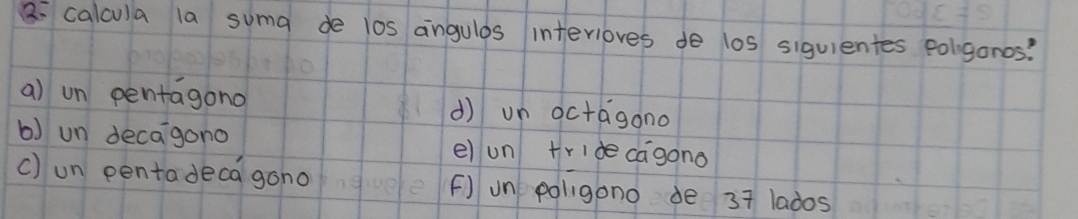 2- calcula la suma de los ángulos interiores de los siguientes poligonos:
a) un pentágono
b) un decágono
c) un pentadecágono
d) un octágono
e) un tridecágono
F) un poligono de 37 lados